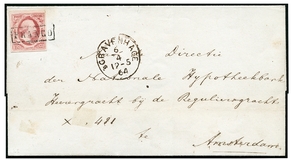 FRANCO
'SGRAVENHAGE
6
4
12-5
64
Aan
de Directie
der Nationale Hypotheekbank
Keizersgracht bij de Reguliersgracht
× 481
te
Amsterdam